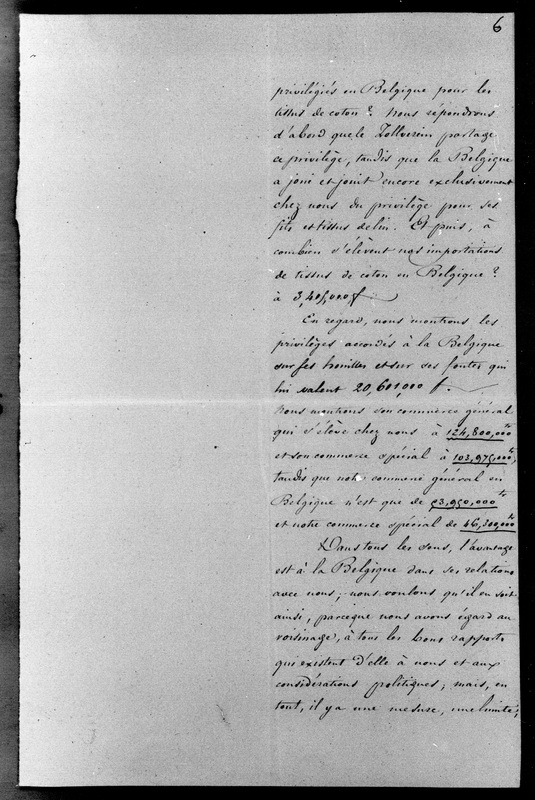 6
privilégiés en Belgique pour les
tissus de coton ? Nous répondrons
d'abord que le Zollverein partage
ce privilège, tandis que la Belgique
a joui et jouit encore exclusivement
chez nous du privilège pour ses
fils et tissus de lin. Et puis, à
combien s'élèvent nos importations
de tissus de coton en Belgique ?
à 3,405,000 f.
En regard, nous mettons les
privilèges accordés à la Belgique
sur ses houilles et sur ses fontes qui
lui valent 20,601,000 f.
Nous mettons son commerce général
qui s'élève chez nous à 124,800,000 fr
et son commerce spécial à 103,975,000 fr,
tandis que notre commerce général en
Belgique n'est que de 93,950,000 fr
et notre commerce spécial de 46,300,000 fr
Dans tous les sens, l'avantage
est à la Belgique dans ses relations
avec nous ; nous voulons qu'il en soit
ainsi, parceque nous avons égard au
voisinage, à tous les bons rapports
qui existent d'elle à nous et aux
considérations politiques ; mais, en
tout, il y a une mesure, une limite ;